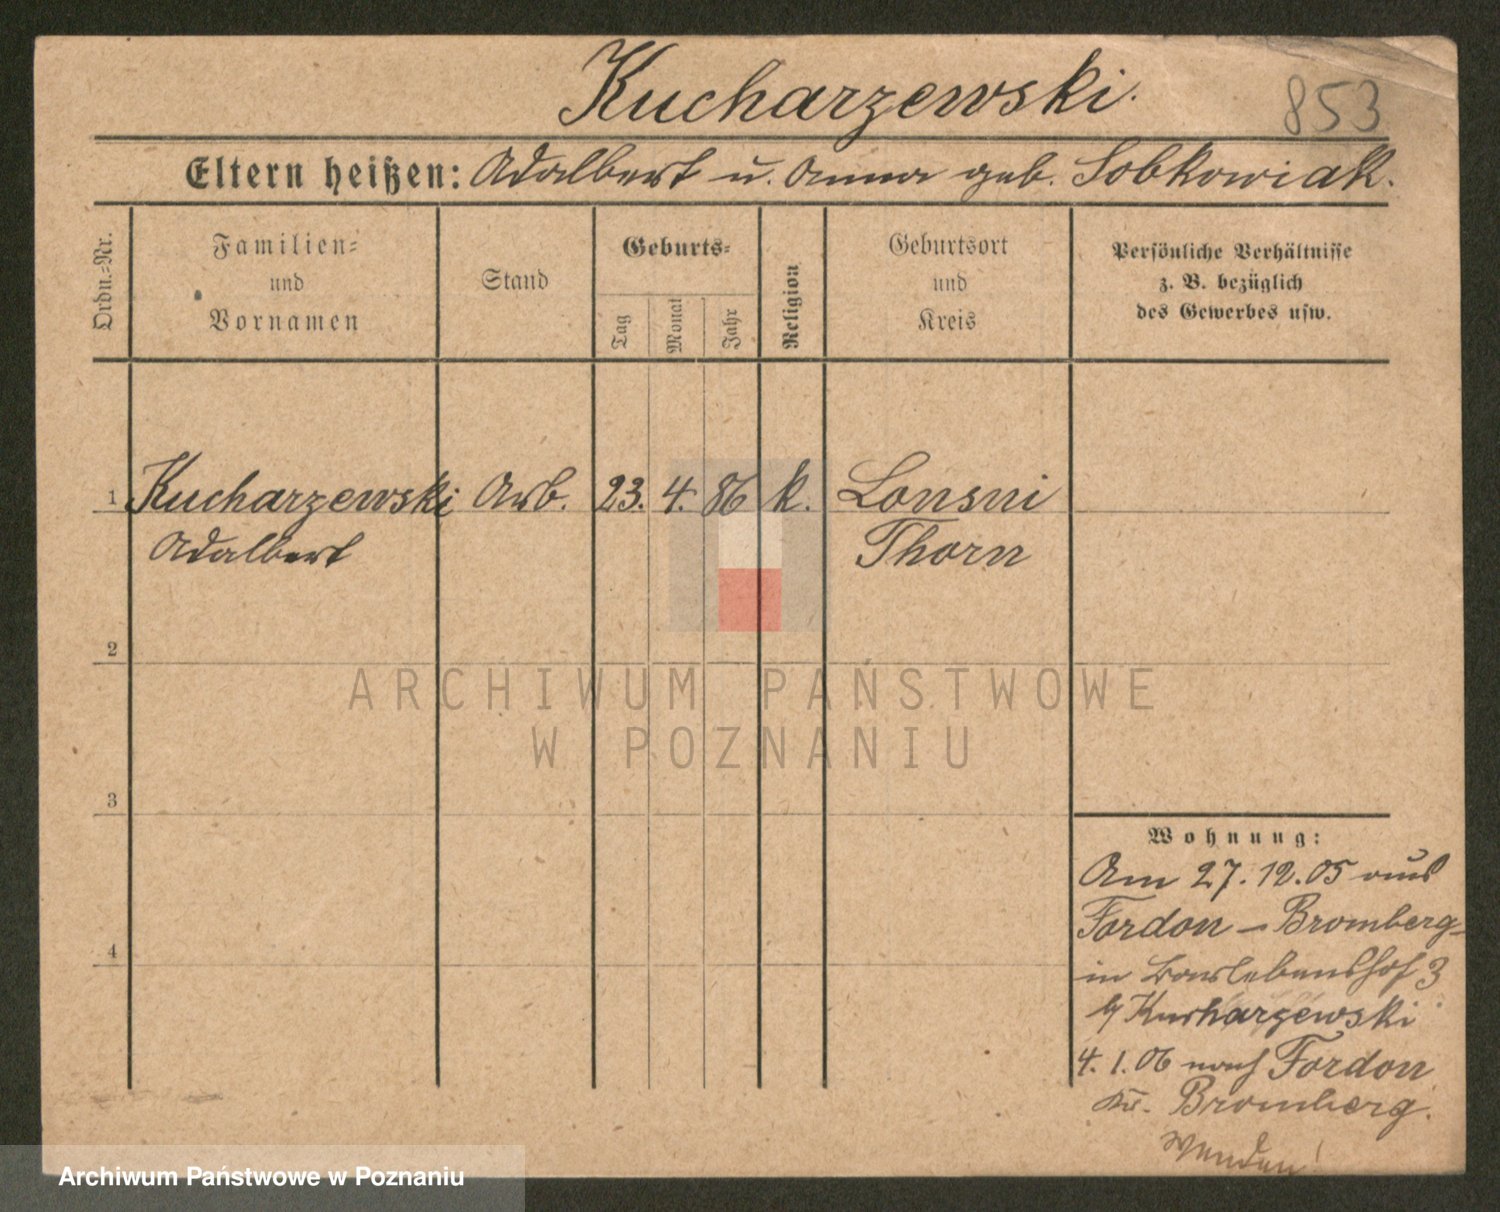 Kucharzewski.
853
Eltern heißen: Adalbert u. Anna geb. Sobkowiak.
Ordn.-Nr.
Familien-
und
Vornamen
Stand
Geburts-
Tag
Monat
Jahr
Religion
Geburtsort
und
Kreis
Persönliche Verhältnisse
z. B. bezüglich
des Gewerbes usw.
1 Kucharzewski Arb. 23. 4. 86 k. Lonsni
Adalbert Thorn
2
ARCHIWUM PAŃSTWOWE
W POZNANIU
3
Wohnung:
Am 27.12.05 aus
Fordon - Bromberg
in 3
4
Kucharzewski
4.1.06 nach Fordon
Kr. Bromberg.
Wenden!
Archiwum Państwowe w Poznaniu